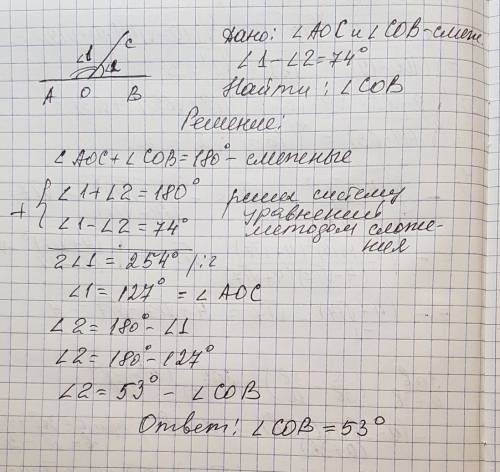 Дано: ∠AOC и ∠COB-смеж.
∠1-∠2=74°
Найти: ∠COB
∠1 C
∠2
A O B
Решение:
∠AOC+∠COB=180°- смежные
∠1+∠2=180° решим систему
+ уравнений
∠1-∠2=74° методом сложе-
ния
2∠1=254° /:2
∠1=127°=∠AOC
∠2=180°-∠1
∠2=180°-127°
∠2=53°- ∠COB
Ответ: ∠COB=53°